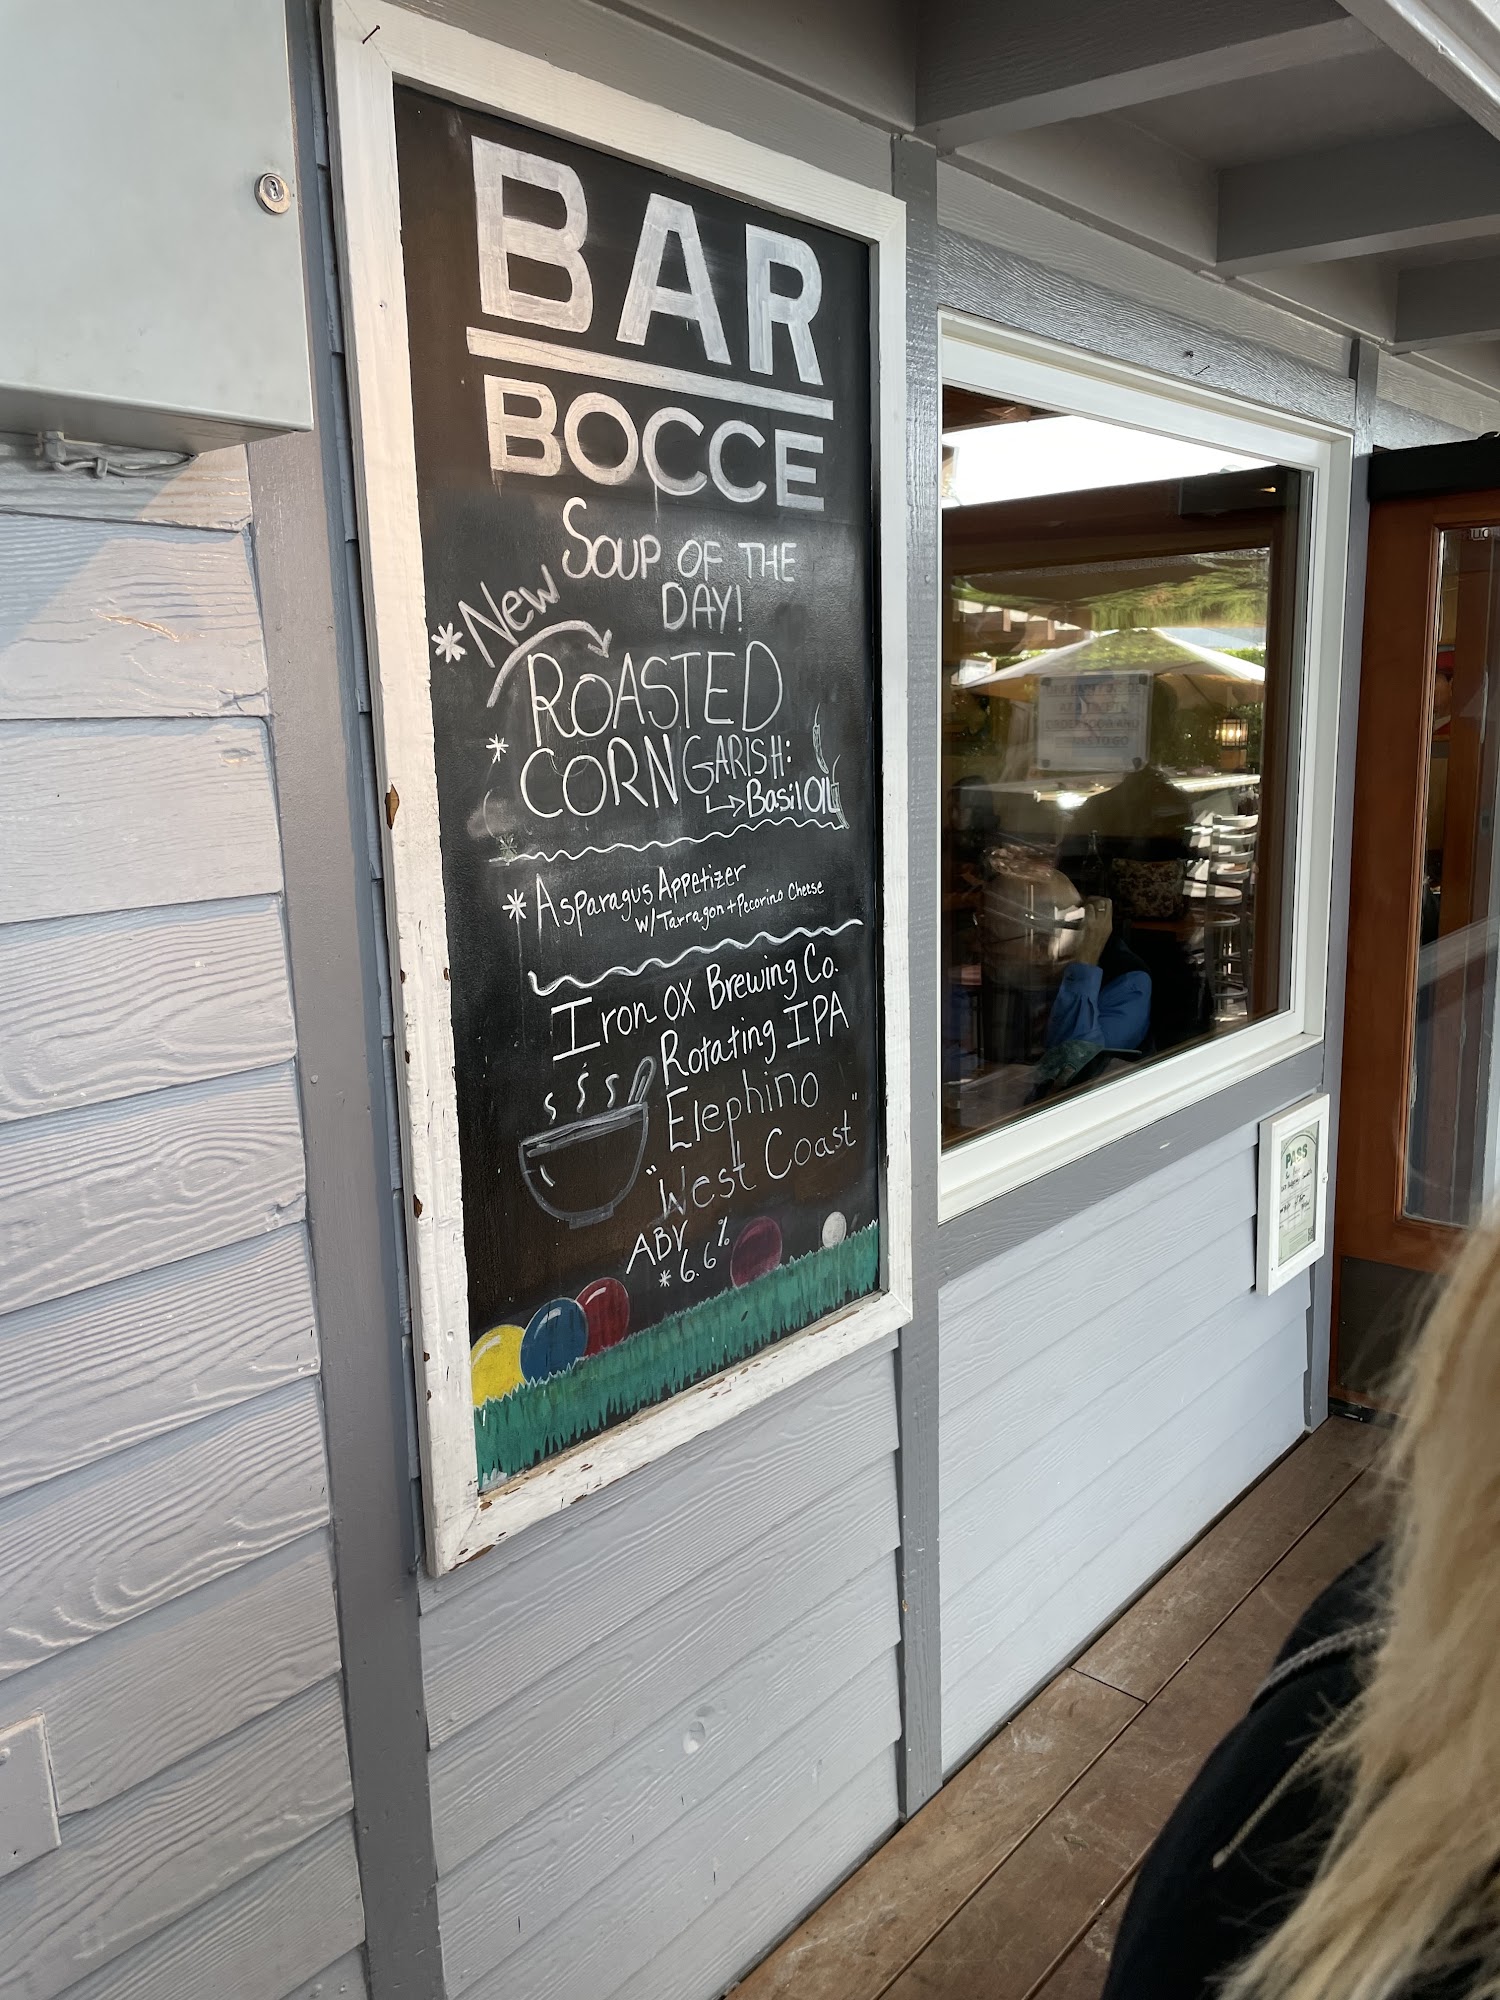 BAR
BOCCE
SOUP OF THE
DAY!
*New
ROASTED
* CORN GARISH:
Basil OIL
* Asparagus Appetizer
w/Tarragon + Pecorino Cheese
Iron OX Brewing Co.
Rotating IPA
Elephino
"West Coast"
ABV
* 6.6%
PASS